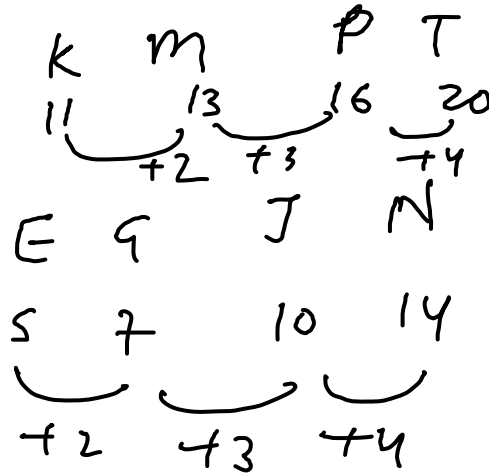 K M P T
11 13 16 20
+2 +3 +4
E G J N
5 7 10 14
+2 +3 +4